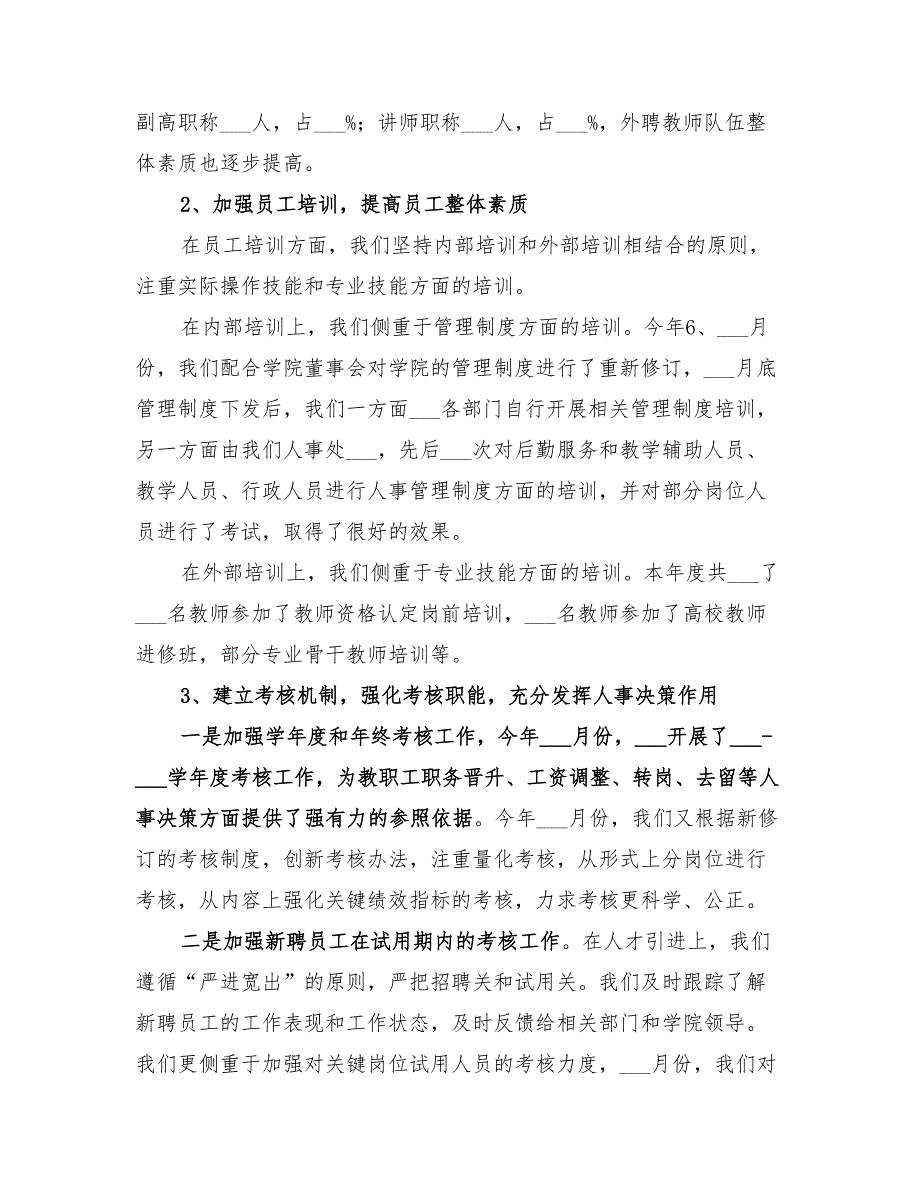 副高职称___人，占___%；讲师职称___人，占___%，外聘教师队伍整
体素质也逐步提高。
2、加强员工培训，提高员工整体素质
在员工培训方面，我们坚持内部培训和外部培训相结合的原则，
注重实际操作技能和专业技能方面的培训。
在内部培训上，我们侧重于管理制度方面的培训。今年6、___月
份，我们配合学院董事会对学院的管理制度进行了重新修订，___月底
管理制度下发后，我们一方面___各部门自行开展相关管理制度培训，
另一方面由我们人事处___，先后___次对后勤服务和教学辅助人员、
教学人员、行政人员进行人事管理制度方面的培训，并对部分岗位人
员进行了考试，取得了很好的效果。
在外部培训上，我们侧重于专业技能方面的培训。本年度共___了
___名教师参加了教师资格认定岗前培训，___名教师参加了高校教师
进修班，部分专业骨干教师培训等。
3、建立考核机制，强化考核职能，充分发挥人事决策作用
一是加强学年度和年终考核工作，今年___月份，___开展了___-
___学年度考核工作，为教职工职务晋升、工资调整、转岗、去留等人
事决策方面提供了强有力的参照依据。今年___月份，我们又根据新修
订的考核制度，创新考核办法，注重量化考核，从形式上分岗位进行
考核，从内容上强化关键绩效指标的考核，力求考核更科学、公正。
二是加强新聘员工在试用期内的考核工作。在人才引进上，我们
遵循“严进宽出”的原则，严把招聘关和试用关。我们及时跟踪了解
新聘员工的工作表现和工作状态，及时反馈给相关部门和学院领导。
我们更侧重于加强对关键岗位试用人员的考核力度，___月份，我们对